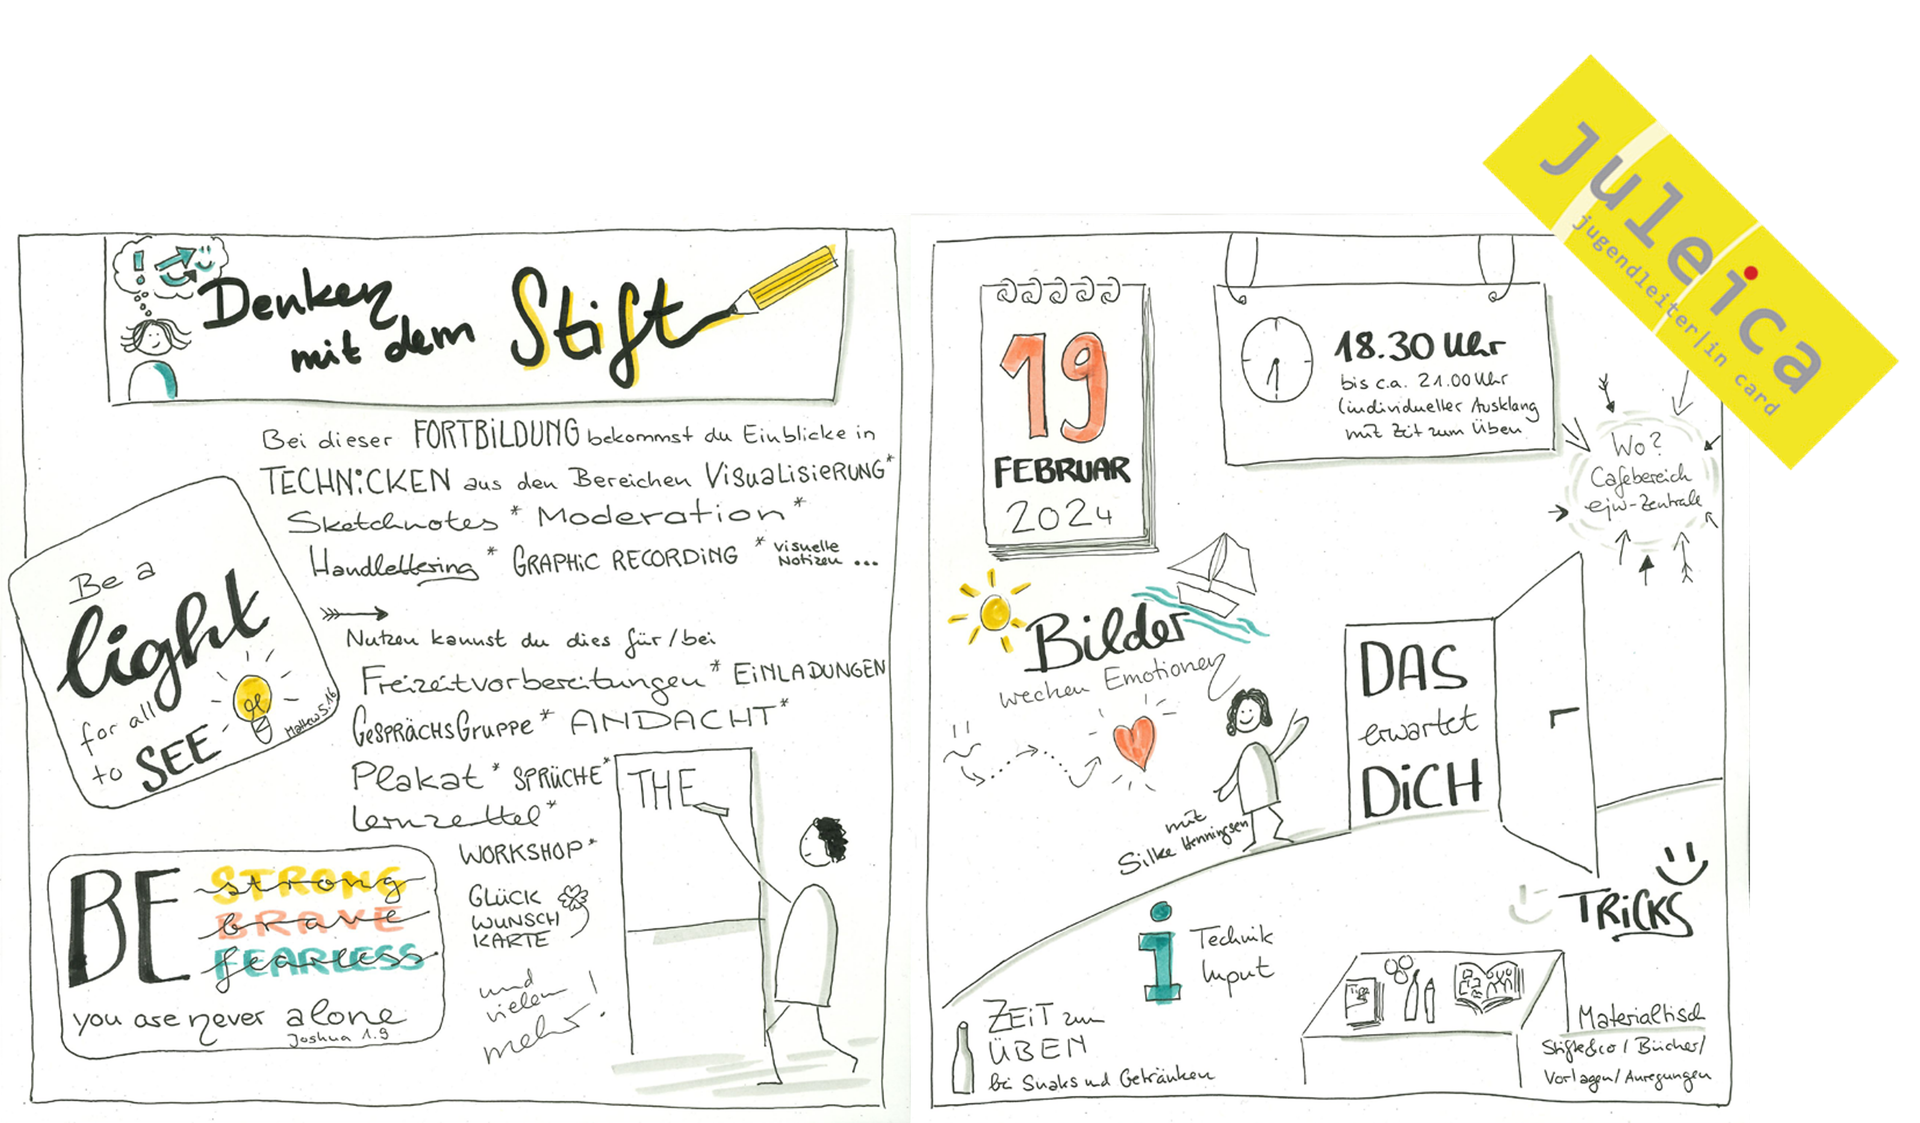 Denken
mit dem Stift
Bei dieser FORTBiLDUNG bekommst du Einblicke in
TECHNiCKEN aus den Bereichen ViSUALiSiERUNG*
Sketchnotes * Moderation *
Handlettering * GRAPHiC RECORDiNG * visuelle
Notizen ...
Nutzen kannst du dies für/bei
Freizeitvorbereitungen * EiNLADUNGEN
GESPRÄCHSGRUPPE * ANDACHT *
Plakat * SPRÜCHE *
Lernzettel *
WORKSHOP *
GLÜCK
WUNSCH
KARTE
und
vielem
mehr!
Be a
light
for all
to SEE
Mattew 5.16
BE STRONG
BRAVE
FEARLESS
you are never alone
Joshua 1.9
THE
19
FEBRUAR
2024
18.30 Uhr
bis c.a. 21.00 Uhr
(individueller Ausklang
mit Zeit zum Üben
Juleica
jugendleiter|in card
Wo?
Cafebereich
ejw-Zentrale
Bilder
wecken Emotionen
mit
Silke Henningsen
DAS
erwartet
DiCH
TRiCKS
i Technik
Input
ZEiT zum
ÜBEN
bei Snaks und Getränken
Materialtisch
Stifte&co / Bücher/
Vorlagen/ Anregungen